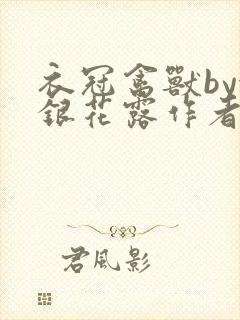 衣冠禽獸by
銀花露作者
君風影